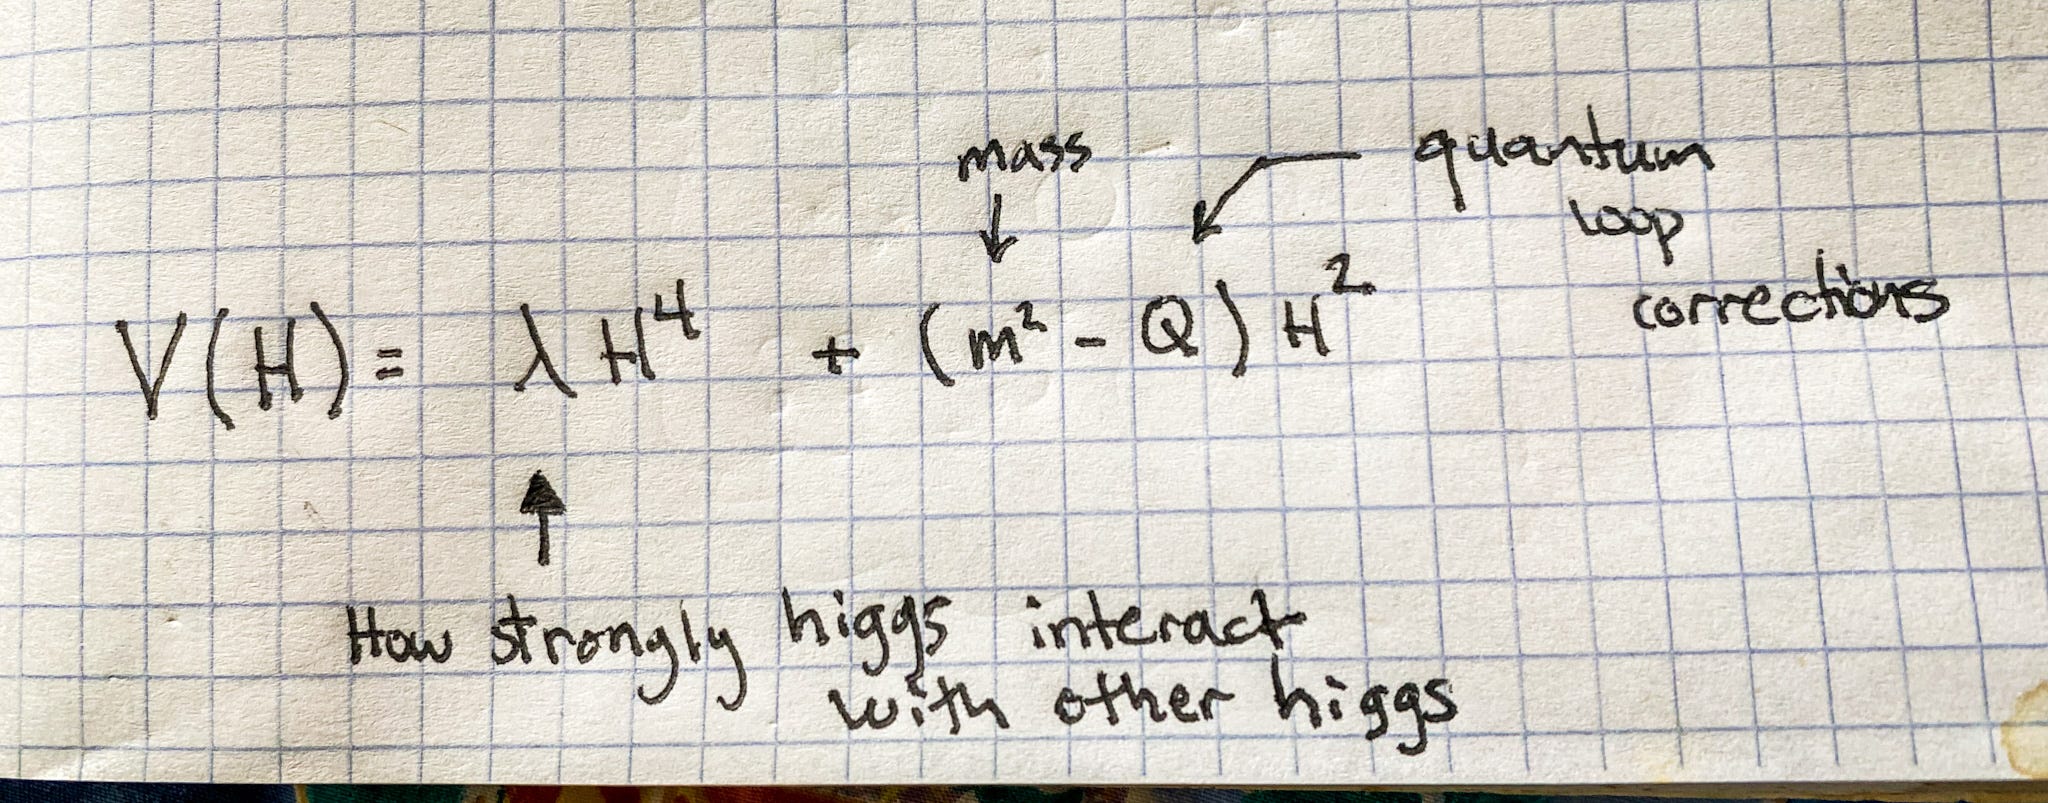 mass
quantum
loop
corrections
V(H) = λ H⁴ + (m² - Q) H²
How strongly higgs interact
with other higgs